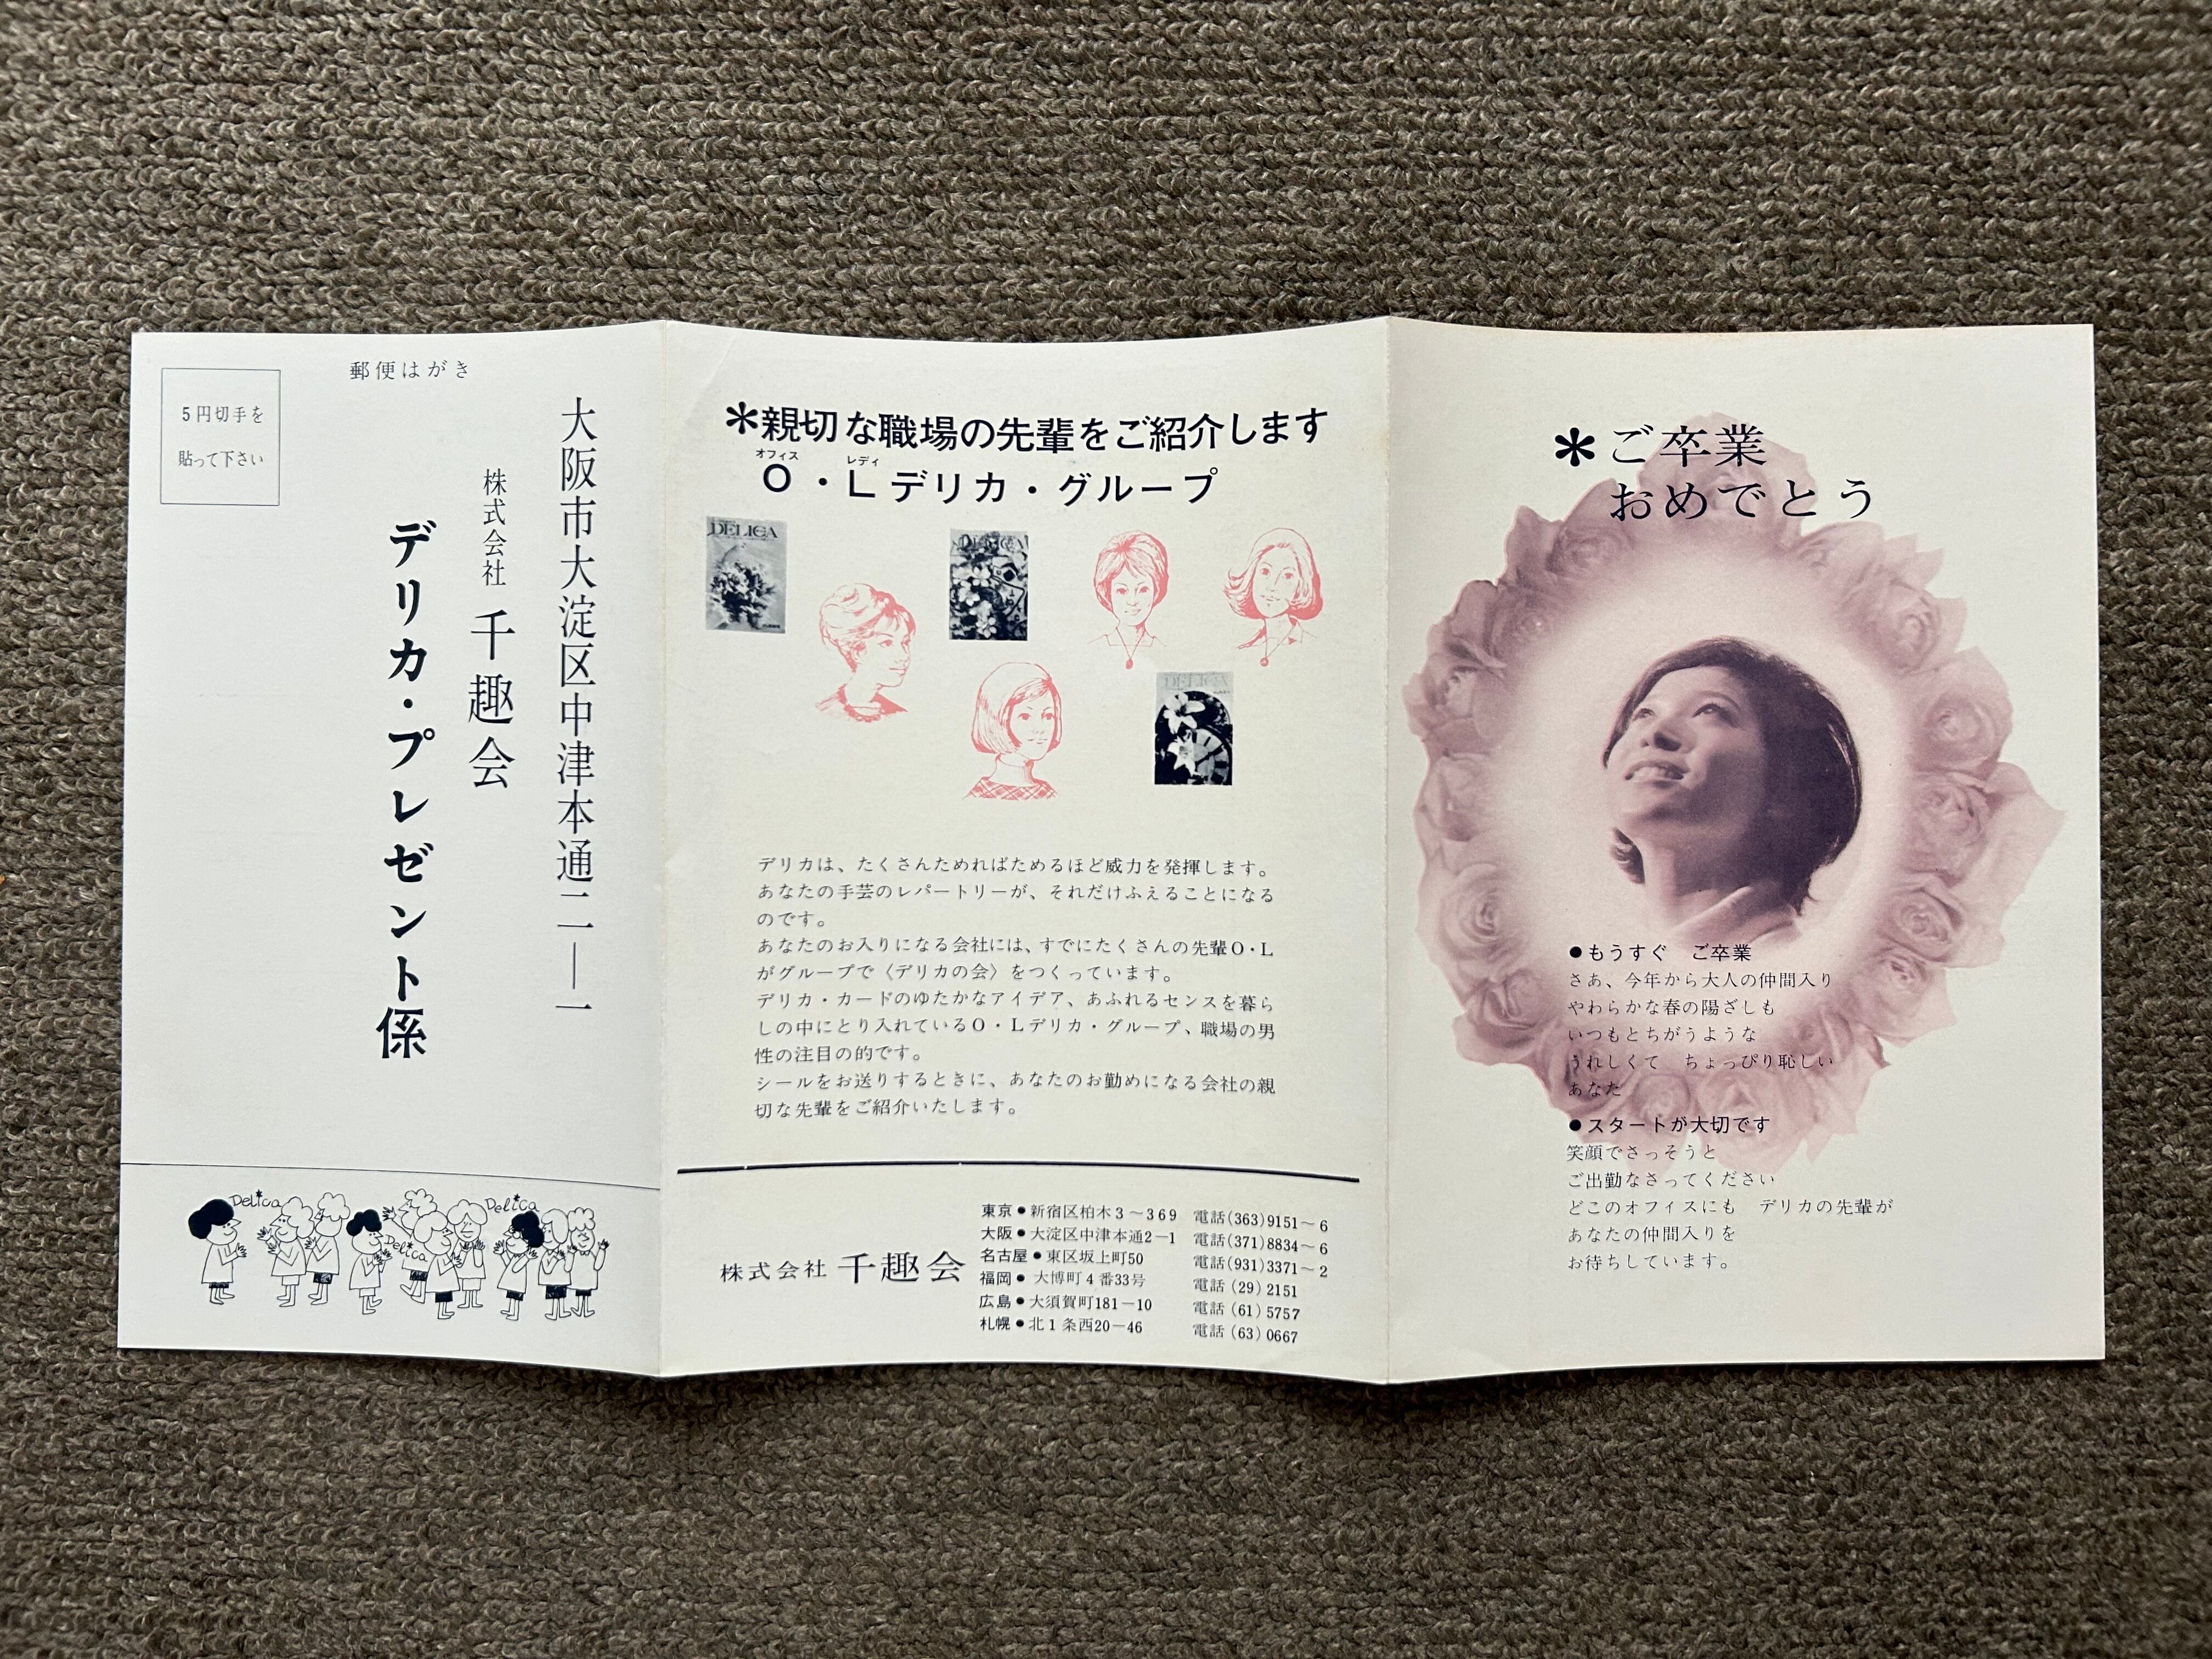 郵便はがき
5円切手を
貼って下さい
大阪市大淀区中津本通二―一
株式会社 千趣会
デリカ・プレゼント係
Delica
Delica
Delica
*親切な職場の先輩をご紹介します
オフィス レディ
O・Lデリカ・グループ
DELICA
DELICA
デリカは、たくさんためればためるほど威力を発揮します。
あなたの手芸のレパートリーが、それだけふえることになる
のです。
あなたのお入りになる会社には、すでにたくさんの先輩O・L
がグループで〈デリカの会〉をつくっています。
デリカ・カードのゆたかなアイデア、あふれるセンスを暮ら
しの中にとり入れているO・Lデリカ・グループ、職場の男
性の注目の的です。
シールをお送りするときに、あなたのお勤めになる会社の親
切な先輩をご紹介いたします。
株式会社 千趣会
東京●新宿区柏木3～369 電話(363)9151～6
大阪●大淀区中津本通2－1 電話(371)8834～6
名古屋●東区坂上町50 電話(931)3371～2
福岡●大博町4番33号 電話(29)2151
広島●大須賀町181－10 電話(61)5757
札幌●北1条西20－46 電話(63)0667
*ご卒業
おめでとう
●もうすぐ ご卒業
さあ、今年から大人の仲間入り
やわらかな春の陽ざしも
いつもとちがうような
うれしくて ちょっぴり恥しい
あなた
●スタートが大切です
笑顔でさっそうと
ご出勤なさってください
どこのオフィスにも デリカの先輩が
あなたの仲間入りを
お待ちしています。